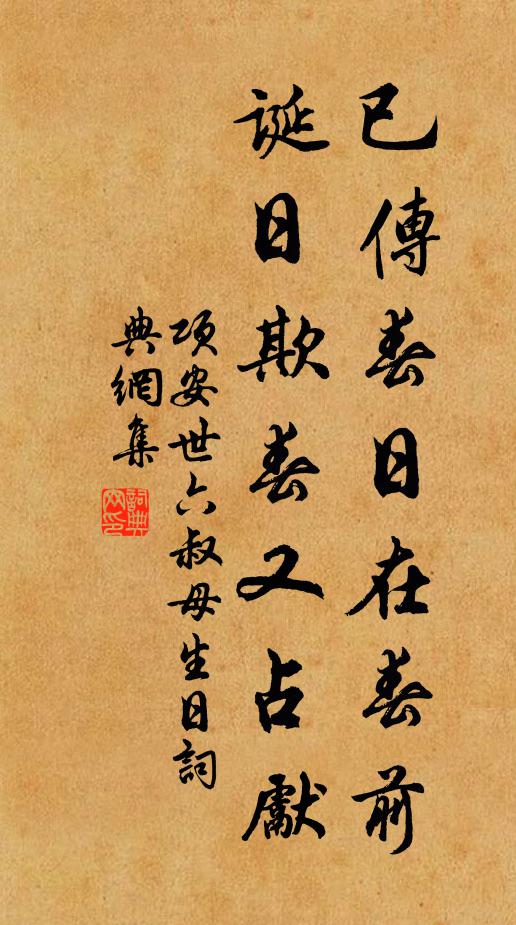 已傳春日在春前
誕日欺春又占獻
項安世六叔母生日詞
典網集
詞典網印